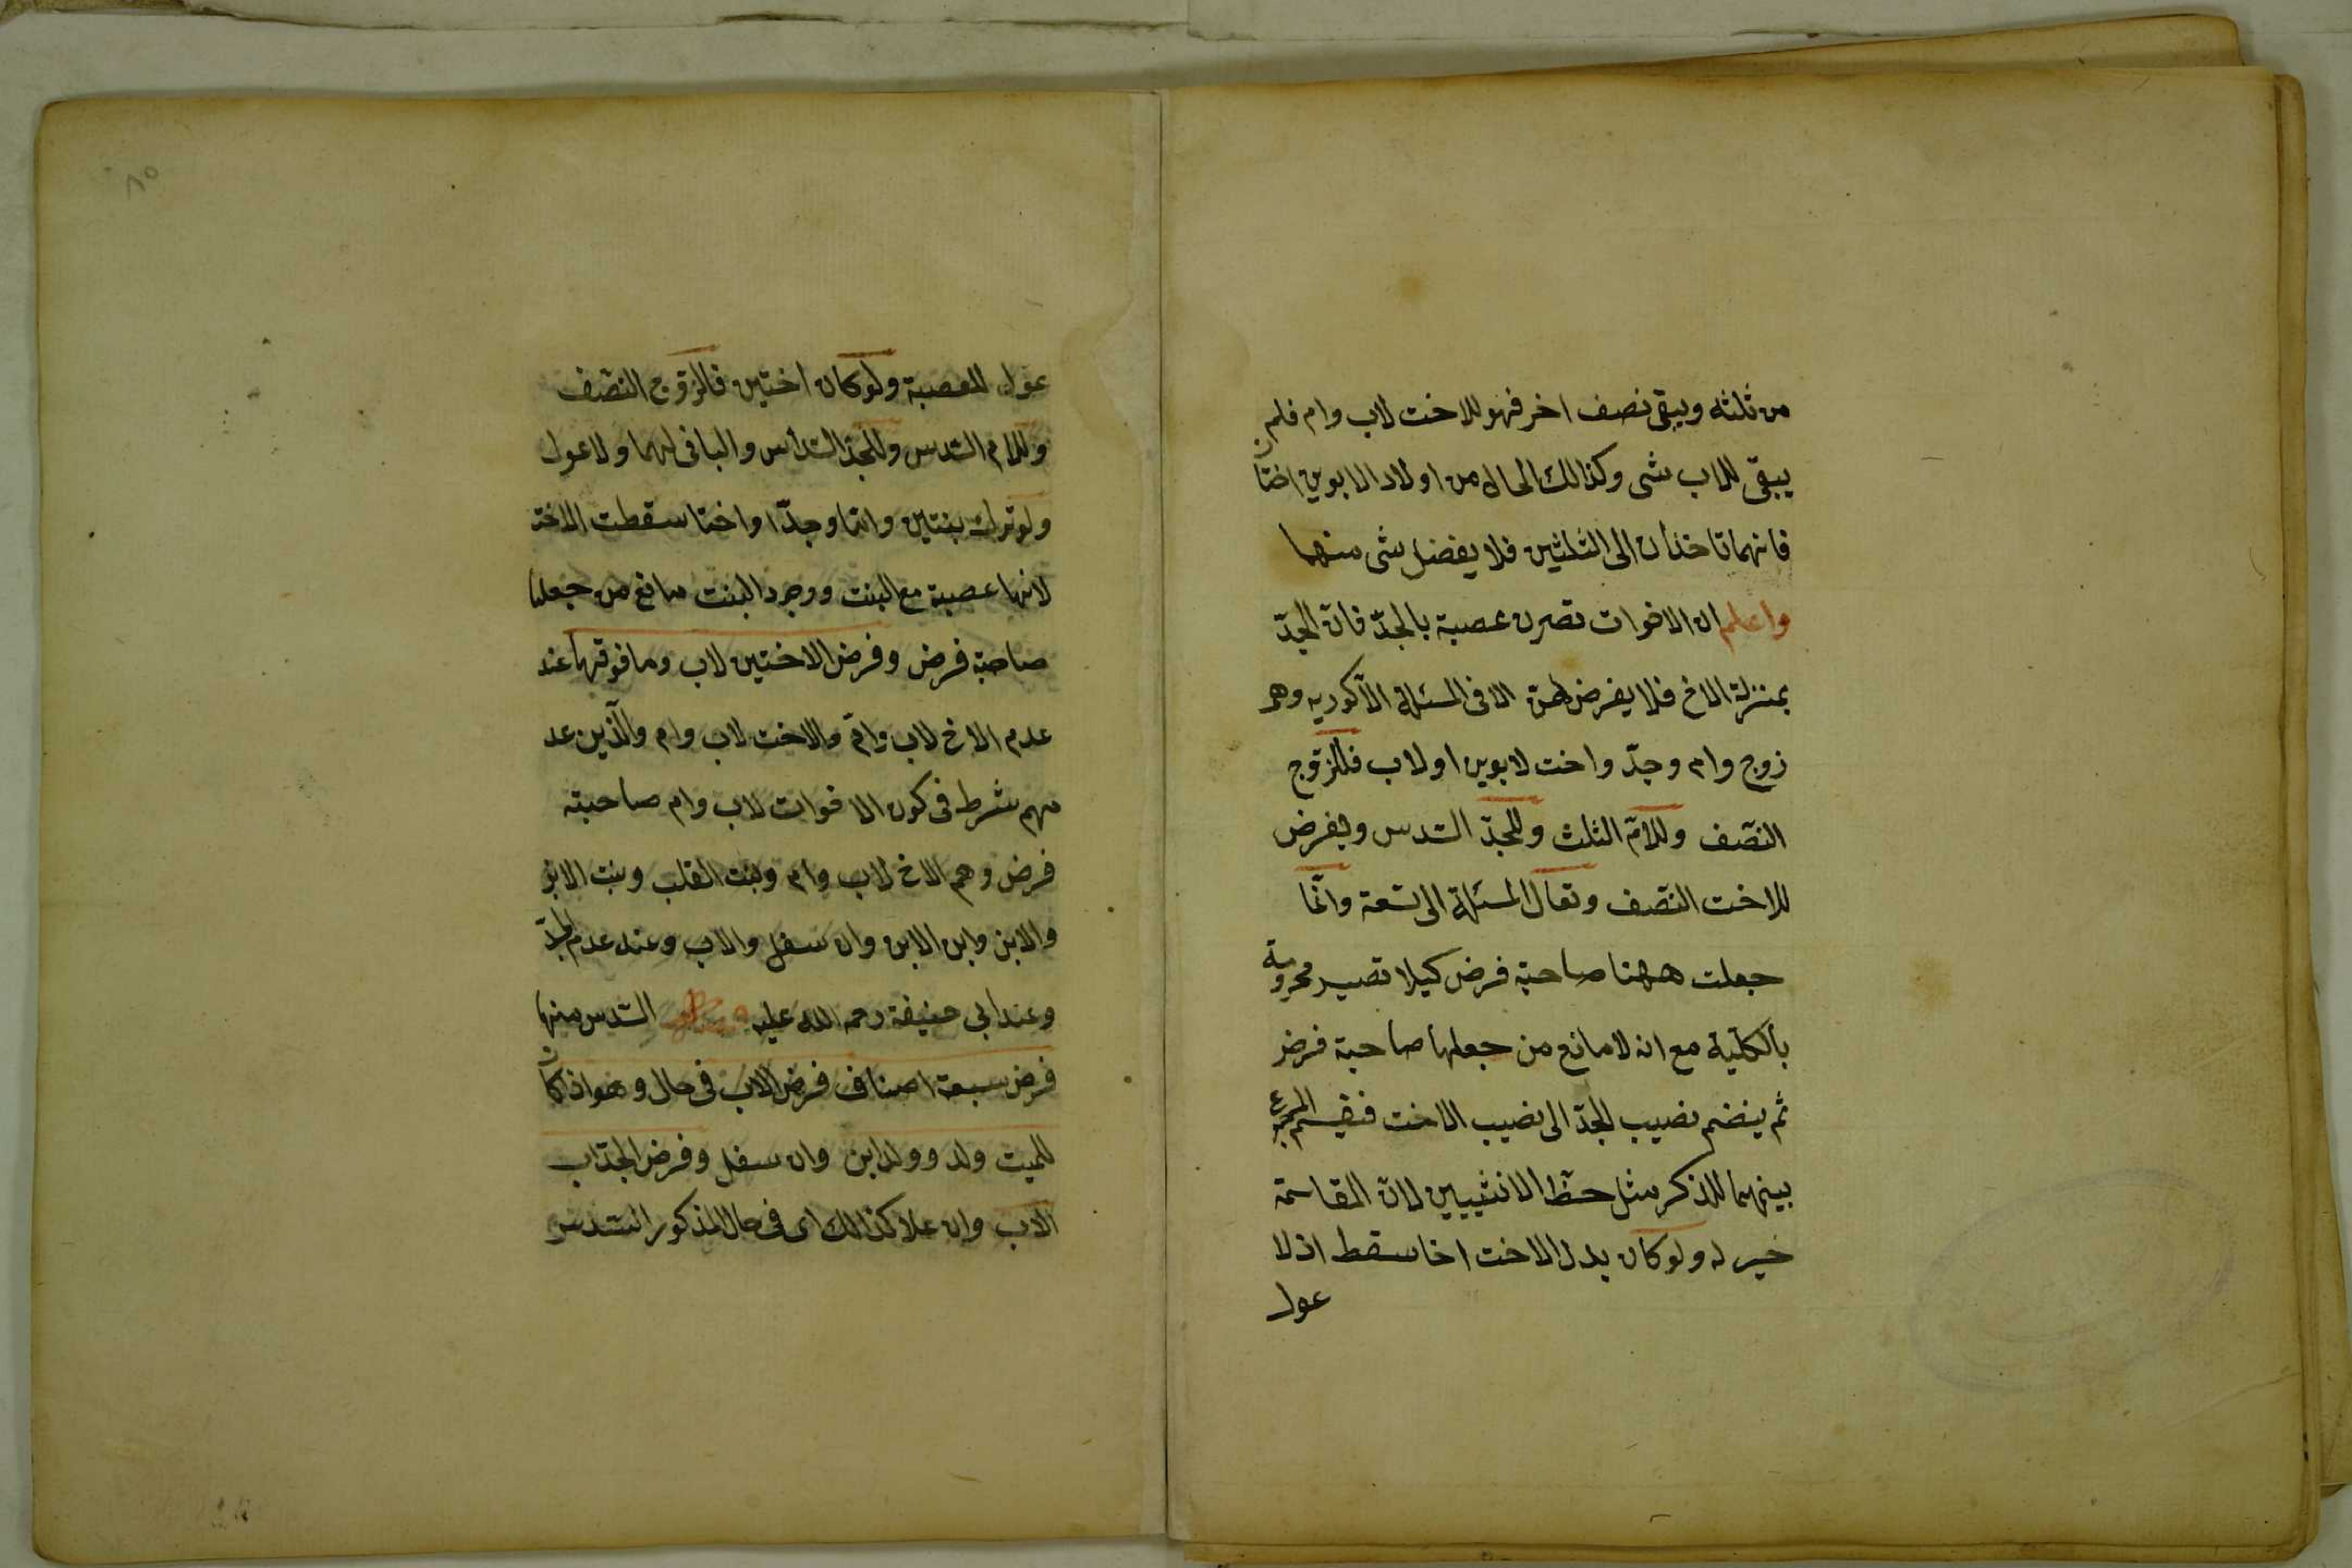 من ثلثه ويبقى نصف اخر فهو للاخت لاب وام فلم
يبقى للاب شى وكذالك الحال من اولاد الابوين اختان
فانهما تاخذان الى الثلثين فلا يفضل شى منهما
واعلم ان الاخوات تصرن عصبة بالجدّ فان الجدّ
بمنزلة الاخ فلا يفرض لهنّ الا فى المسئلة الاكوريه وهى
زوج وام وجدّ واخت لابوين او لاب فللزوج
النّصف وللامّ الثلث وللجدّ السّدس ويفرض
للاخت النّصف وتعال المسئلة الى تسعة وانّما
جعلت ههنا صاحبة فرض كيلا تصير محرومة
بالكليّة مع انه لا مانع من جعلها صاحبة فرض
ثم ينضم نصيب الجدّ الى نصيب الاخت فيقسم المجموع
بينهما للذكر مثل حظّ الانثيين لانّ المقاسمة
خير له ولو كان بدل الاخت اخا سقط اذ لا
عول
٨٥
عول للعصبة ولو كان اختين فللزّوج النّصف
وللام السّدس وللجدّ السّداس والباقى لهما ولا عول
ولو ترك بنتين وامّا وجدّا واختا سقطت الاخت
لانها عصبة مع البنت ووجود البنت مانع من جعلها
صاحبة فرض وفرض الاختين لاب وما فوقهما عند
عدم الاخ لاب وامّ والاخت لاب وام والّذين عد
مهم شرط فى كون الاخوات لاب وام صاحبته
فرض وهم الاخ لاب وام وبنت القلب وبنت الابن
والابن وابن الابن وان سفل والاب وعند عدم الجدّ
وعند ابى حنيفة رحمه الله عليه السّدس منها
فرض سبعة اصناف فرض الاب فى حال وهو اذا كان
للميت ولد وولد ابن وان سفل وفرض الجدّ اب
الاب وان علا كذالك اى فى حال المذكور السّدس